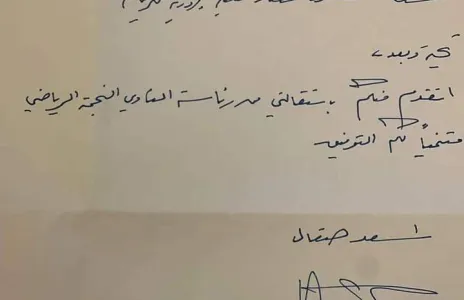 تحية وبعد،
اتقدم منكم باستقالتي من رئاسة النادي النجمة الرياضي
متمنياً لكم التوفيق
اسعد صقال